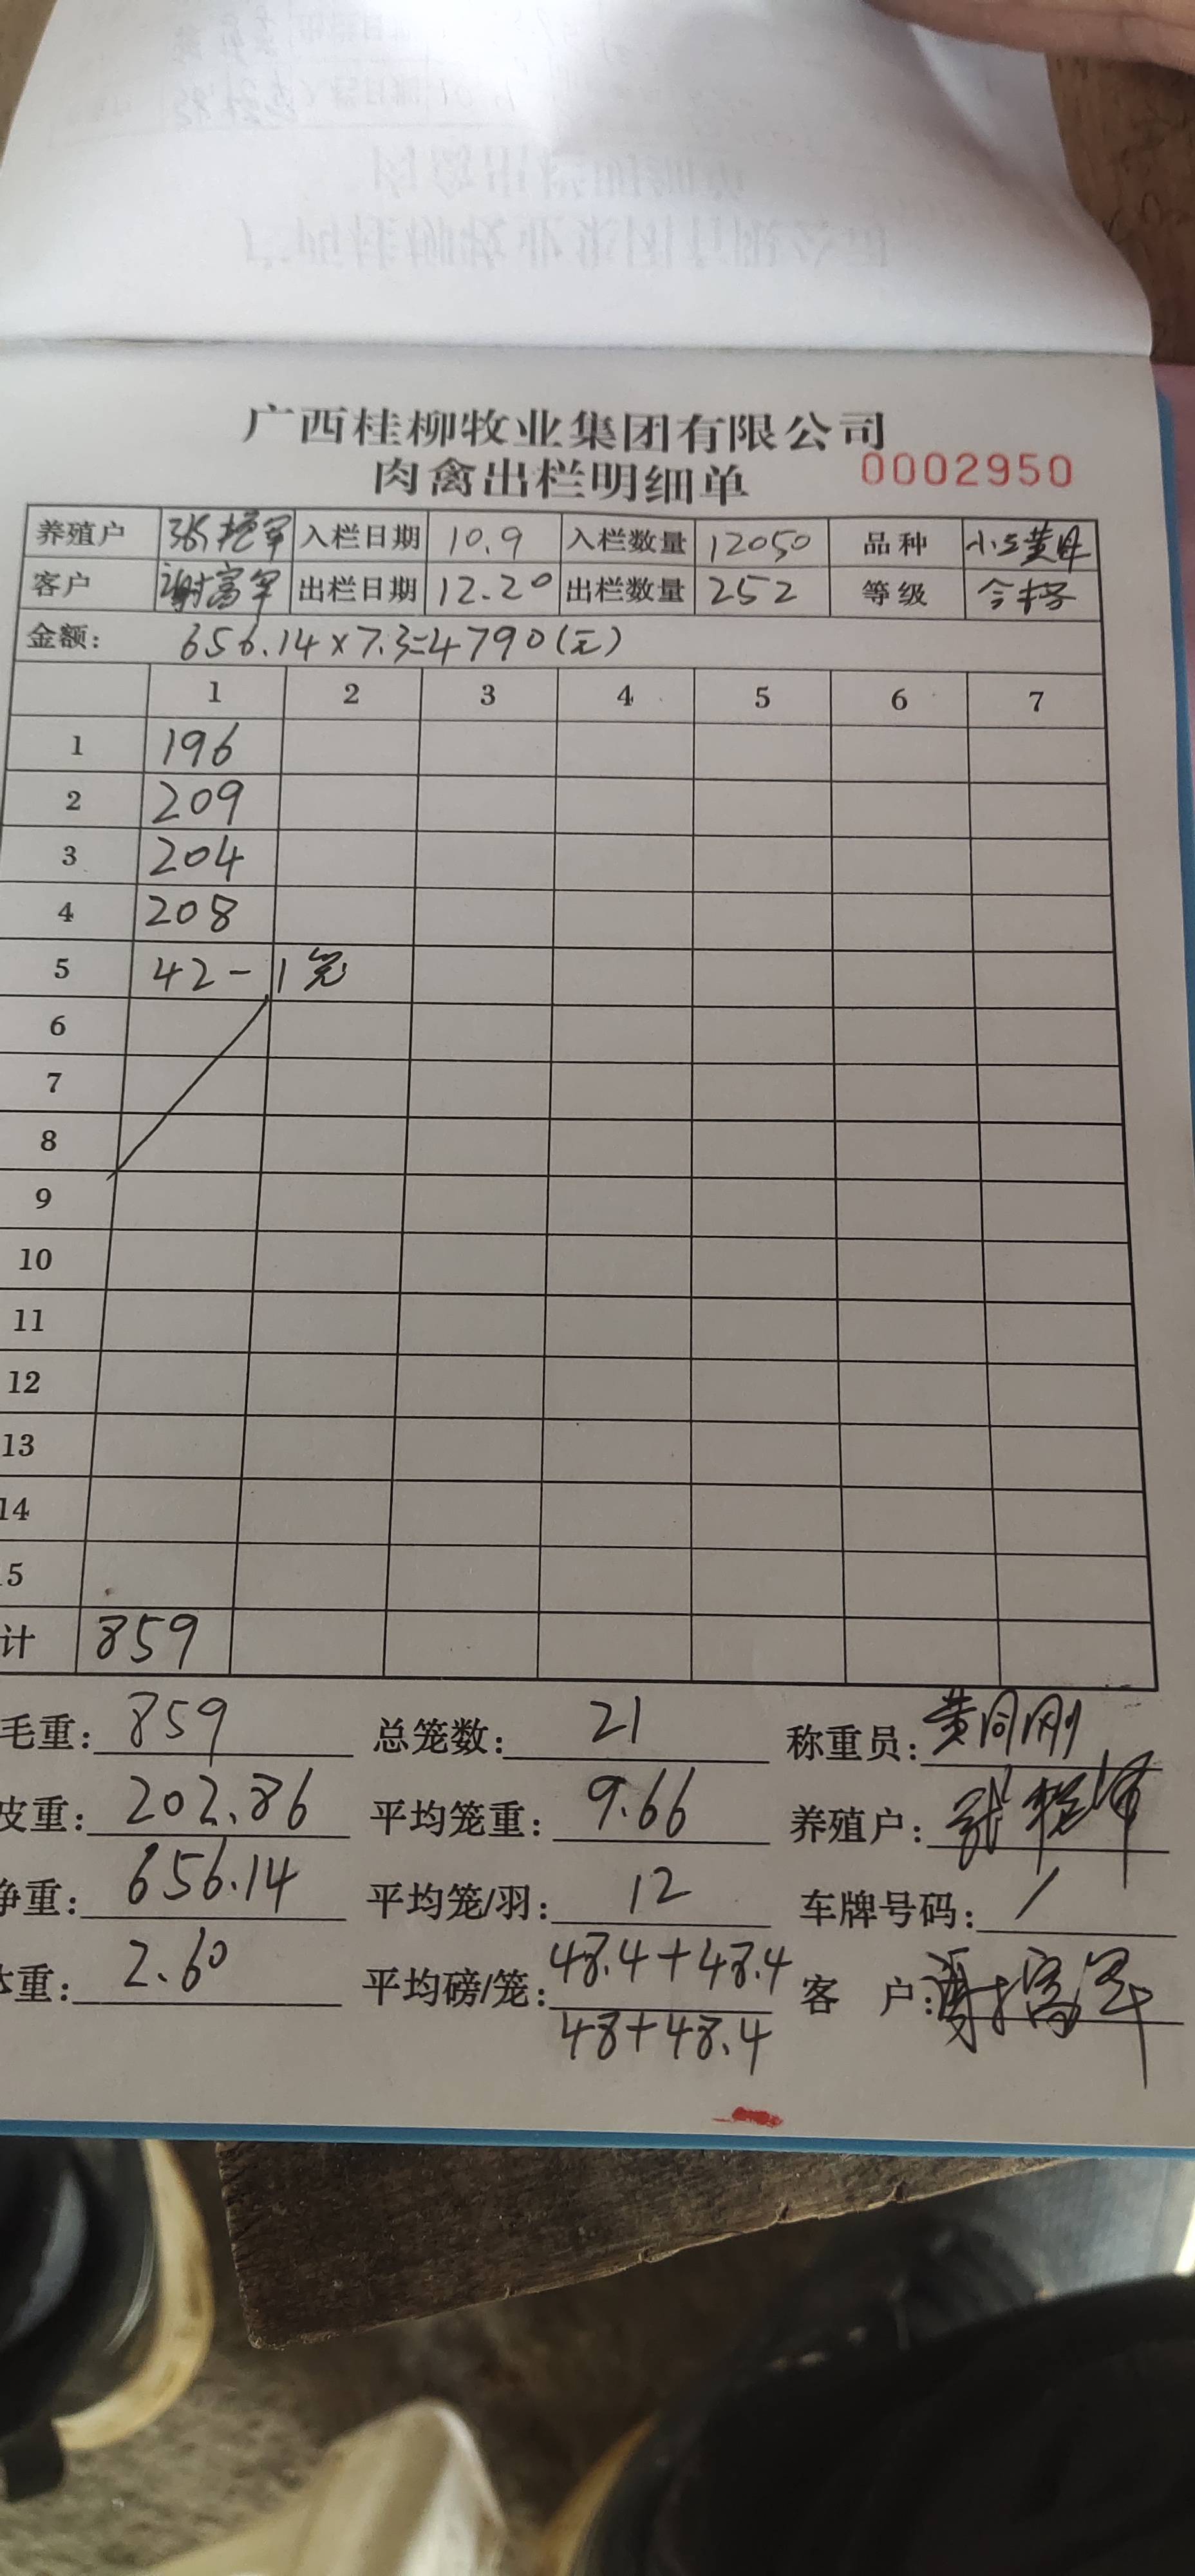 广西桂柳牧业集团有限公司
肉禽出栏明细单 0002950
养殖户 入栏日期 10.9 入栏数量 12050 品种
客户 谢富军 出栏日期 12.20 出栏数量 252 等级 合格
金额: 656.14×7.3=4790(元)
1 2 3 4 5 6 7
1 196
2 209
3 204
4 208
5 42-1笼
6
7
8
9
10
11
12
13
14
15
计 859
毛重: 859 总笼数: 21 称重员:
皮重: 202.86 平均笼重: 9.66 养殖户:
净重: 656.14 平均笼/羽: 12 车牌号码: /
体重: 2.60 平均磅/笼: 48.4+48.4 客 户:
48+48.4